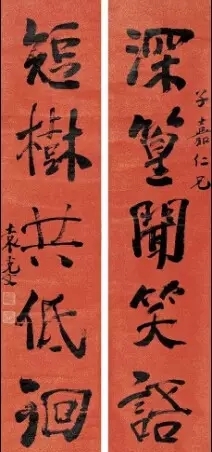 深篁聞笑語
子嘉仁兄
短樹共低徊
袁克文